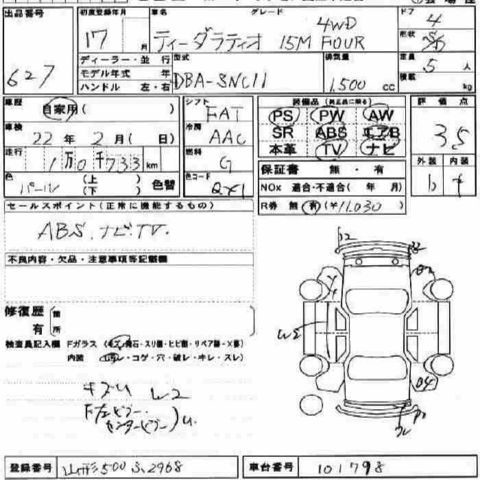 出品番号 初度登録年月 車名 グレード ドア
627 17 月 ティーダラティオ 15M 4WD FOUR 4
ディーラー・並行 型式 排気量 形状
モデル年式 年 定員 5 人
ハンドル 左・右 DBA-SNC11 1,500 cc 積載 kg
車歴 自家用( ) シフト FAT 装備品 (純正品に限る) 評価点
車検 22年 2月( 日) 冷房 AAC PS PW AW 3.5
SR ABS エアB
走行 1万0千733km 燃料 G 本革 TV ナビ 外装 内装
保証書 無・有
色 パール (上) (下) 色替 色コード QX1 NOx 適合・不適合( 年 月)
R券 無 有(¥11,030)
セールスポイント(正常に機能するもの)
ABS.ナビ.TV.
不良内容・欠品・注意事項等記載欄
修復歴 箇
有 所
検査員記入欄 Fガラス (キズ・飛石・スリ傷・ヒビ割・リペア跡・X要)
内装 (汚レ・コゲ・穴・破レ・キレ・スレ)
W2
キズU W2
センターピラー U
04
登録番号 山形500 ふ2968 車台番号 101798